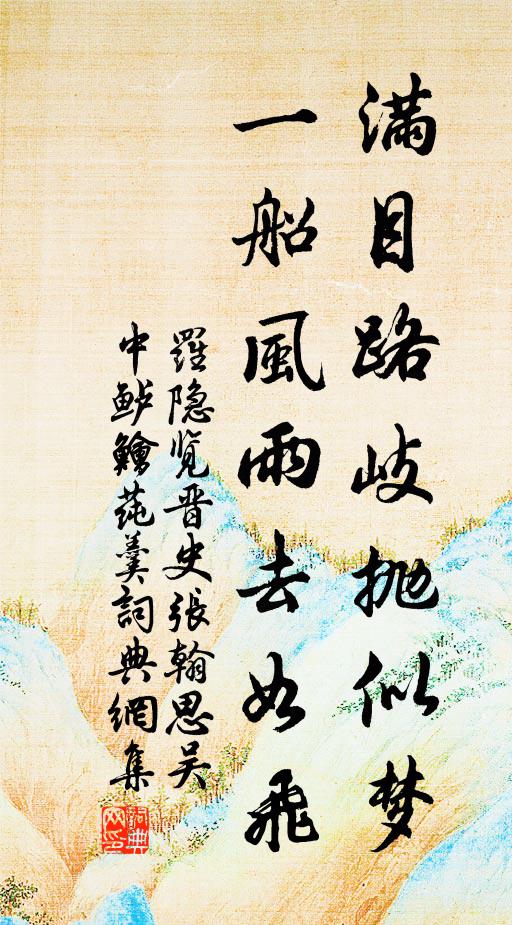 滿目路歧拋似梦
一船風雨去如飛
羅隐览晋史張翰思吴
中鲈鱠莼羹詞典網集
詞典
网印